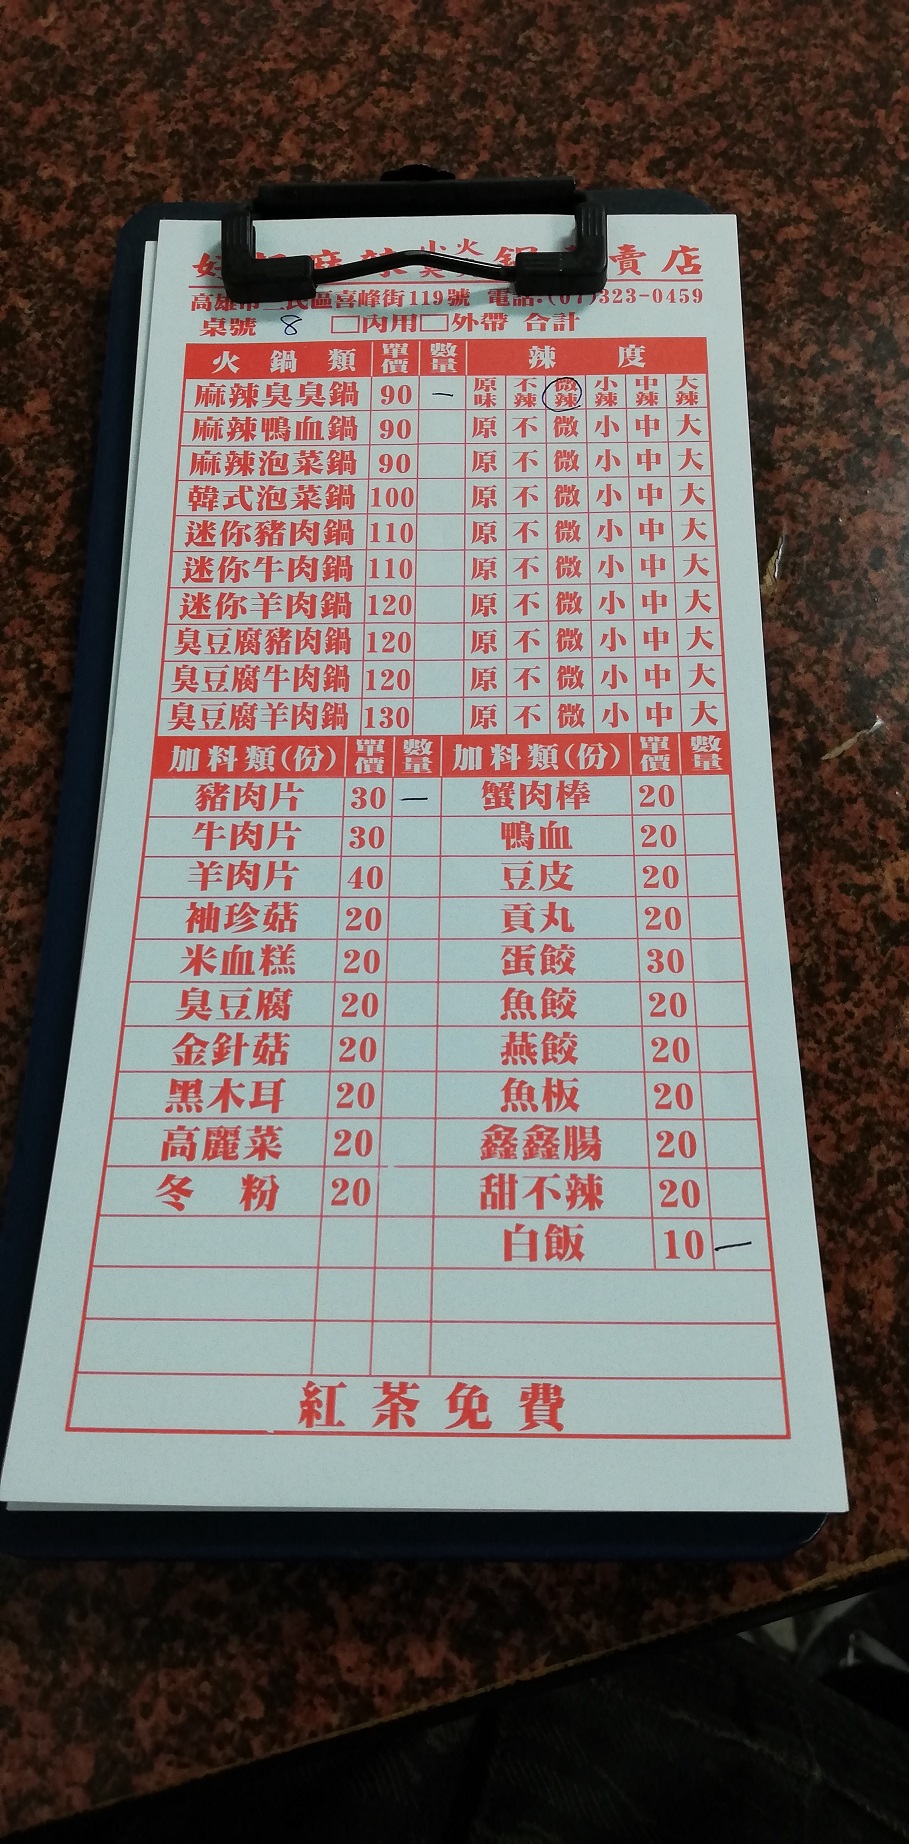 麻辣 小火臭臭 鍋專賣店
高雄市三民區喜峰街119號 電話:(07)323-0459
桌號 8 □內用□外帶 合計
火鍋類 單價 數量 辣度
麻辣臭臭鍋 90 一 原味 不辣 微辣 小辣 中辣 大辣
麻辣鴨血鍋 90 原 不 微 小 中 大
麻辣泡菜鍋 90 原 不 微 小 中 大
韓式泡菜鍋 100 原 不 微 小 中 大
迷你豬肉鍋 110 原 不 微 小 中 大
迷你牛肉鍋 110 原 不 微 小 中 大
迷你羊肉鍋 120 原 不 微 小 中 大
臭豆腐豬肉鍋 120 原 不 微 小 中 大
臭豆腐牛肉鍋 120 原 不 微 小 中 大
臭豆腐羊肉鍋 130 原 不 微 小 中 大
加料類(份) 單價 數量 加料類(份) 單價 數量
豬肉片 30 一 蟹肉棒 20
牛肉片 30 鴨血 20
羊肉片 40 豆皮 20
袖珍菇 20 貢丸 20
米血糕 20 蛋餃 30
臭豆腐 20 魚餃 20
金針菇 20 燕餃 20
黑木耳 20 魚板 20
高麗菜 20 鑫鑫腸 20
冬粉 20 甜不辣 20
白飯 10 一
紅茶免費